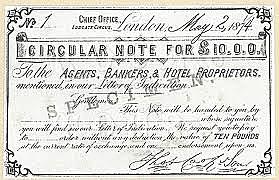 No. 1 CHIEF OFFICE, London, May 2, 1874
LUDGATE CIRCUS,
CIRCULAR NOTE FOR £10.0.0.
To the AGENTS, BANKERS, & HOTEL PROPRIETORS,
mentioned in our Letter of Indication.
SPECIMEN
Gentlemen,
This Note will be tendered to you by
whose signature
you will find in our Letter of Indication. We request you to pay
to order without any deduction the value of TEN POUNDS
at the current rate of exchange and on endorsement upon us.
Thos Cook & Son